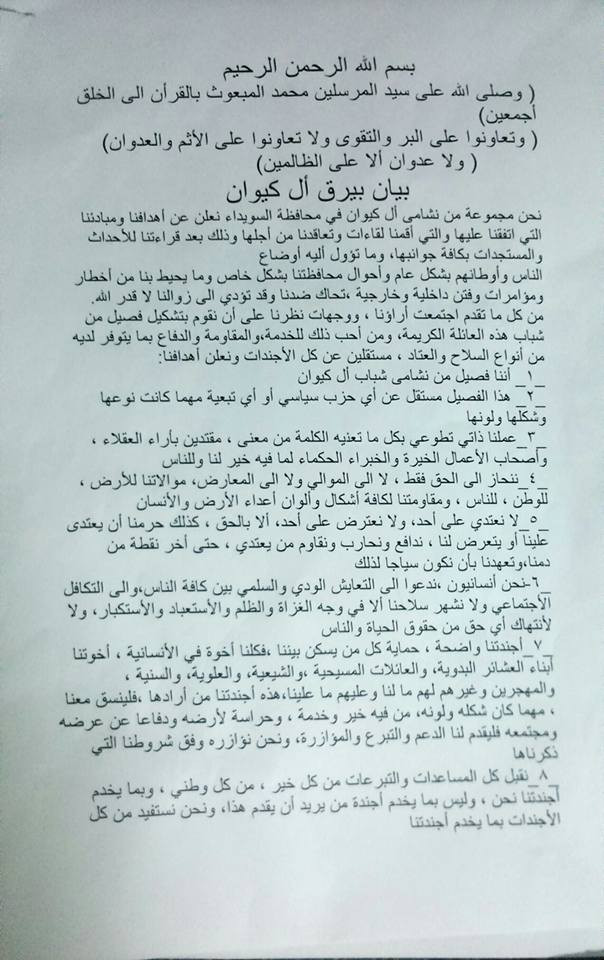 بسم الله الرحمن الرحيم
( وصلى الله على سيد المرسلين محمد المبعوث بالقرأن الى الخلق
أجمعين)
( وتعاونوا على البر والتقوى ولا تعاونوا على الأثم والعدوان)
( ولا عدوان ألا على الظالمين)
بيان بيرق أل كيوان
نحن مجموعة من نشامى أل كيوان في محافظة السويداء نعلن عن أهدافنا ومبادئنا
التي اتفقنا عليها والتي أقمنا لقاءات وتعاقدنا من أجلها وذلك بعد قراءتنا للأحداث
والمستجدات بكافة جوانبها، وما تؤول أليه أوضاع
الناس وأوطانهم بشكل عام وأحوال محافظتنا بشكل خاص وما يحيط بنا من أخطار
ومؤامرات وفتن داخلية وخارجية ،تحاك ضدنا وقد تؤدي الى زوالنا لا قدر الله.
من كل ما تقدم اجتمعت أراؤنا ، ووجهات نظرنا على أن نقوم بتشكيل فصيل من
شباب هذه العائلة الكريمة، ومن أحب ذلك للخدمة،والمقاومة والدفاع بما يتوفر لديه
من أنواع السلاح والعتاد ، مستقلين عن كل الأجندات ونعلن أهدافنا:
_١_ أننا فصيل من نشامى شباب أل كيوان
_٢_ هذا الفصيل مستقل عن أي حزب سياسي أو أي تبعية مهما كانت نوعها
وشكلها ولونها
_٣_ عملنا ذاتي تطوعي بكل ما تعنيه الكلمة من معنى ، مقتدين بأراء العقلاء ،
وأصحاب الأعمال الخيرة والخبراء الحكماء لما فيه خير لنا وللناس
_٤_ ننحاز الى الحق فقط ، لا الى الموالي ولا الى المعارض، موالاتنا للأرض ،
للوطن ، للناس ، ومقاومتنا لكافة أشكال وألوان أعداء الأرض والأنسان
_٥_ لا نعتدي على أحد، ولا نعترض على أحد، ألا بالحق ، كذلك حرمنا أن يعتدى
علينا أو يتعرض لنا ، ندافع ونحارب ونقاوم من يعتدي ، حتى أخر نقطة من
دمنا،وتعهدنا بأن نكون سياجا لذلك
_٦-نحن أنسانيون ،ندعوا الى التعايش الودي والسلمي بين كافة الناس،والى التكافل
الأجتماعي ولا نشهر سلاحنا ألا في وجه الغزاة والظلم والأستعباد والأستكبار، ولا
لأنتهاك أي حق من حقوق الحياة والناس
_٧_ أجندتنا واضحة ، حماية كل من يسكن بيننا ،فكلنا أخوة في الأنسانية ، أخوتنا
أبناء العشائر البدوية، والعائلات المسيحية ،والشيعية، والعلوية، والسنية ،
والمهجرين وغيرهم لهم ما لنا وعليهم ما علينا،هذه أجندتنا من أرادها ،فلينسق معنا
، مهما كان شكله ولونه، من فيه خير وخدمة ، وحراسة لأرضه ودفاعا عن عرضه
ومجتمعه فليقدم لنا الدعم والتبرع والمؤازرة، ونحن نؤازره وفق شروطنا التي
ذكرناها
_٨_ نقبل كل المساعدات والتبرعات من كل خير ، من كل وطني ، وبما يخدم
أجندتنا نحن ، وليس بما يخدم أجندة من يريد أن يقدم هذا، ونحن نستفيد من كل
الأجندات بما يخدم أجندتنا